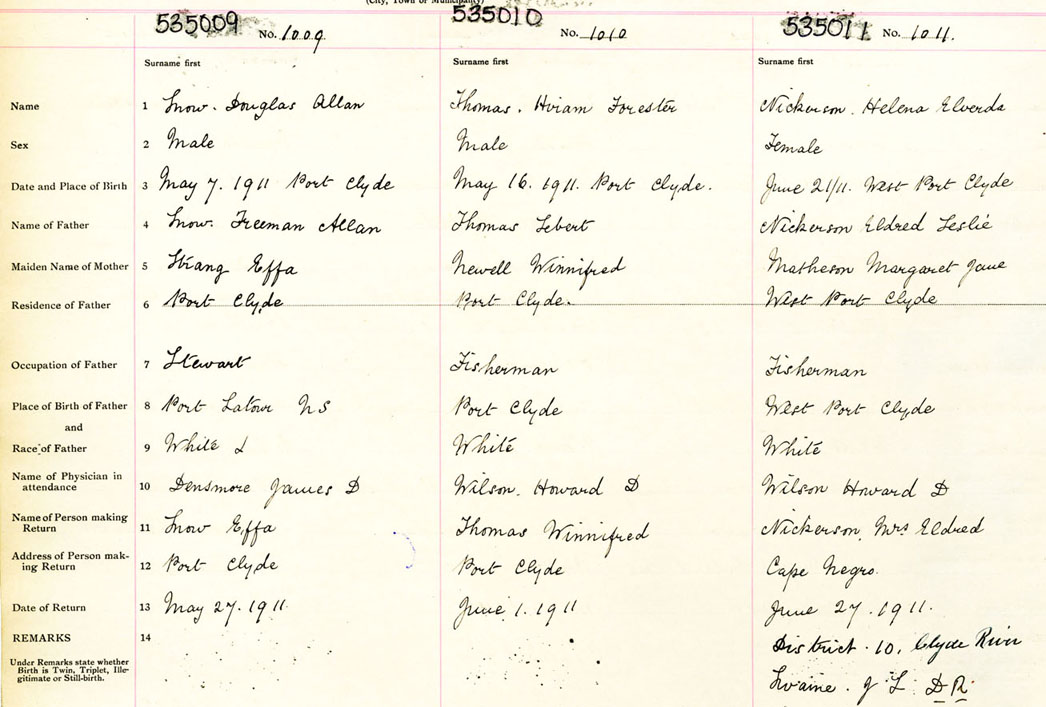 (City, Town or Municipality)
535009 No. 1009 535010 No. 1010 535011 No. 1011.
Surname first Surname first Surname first
Name 1 Snow. Douglas Allan Thomas. Hviam Forester Nickerson. Helena Elverda
Sex 2 Male Male Female
Date and Place of Birth 3 May 7. 1911 Port Clyde May 16. 1911. Port Clyde. June 21/11. West Port Clyde
Name of Father 4 Snow. Freeman Allan Thomas Lebert Nickerson Eldred Leslie
Maiden Name of Mother 5 Strang Effa Newell Winnifred Matheson Margaret Jane
Residence of Father 6 Port Clyde Port Clyde. West Port Clyde
Occupation of Father 7 Stewart Fisherman Fisherman
Place of Birth of Father 8 Port Latour NS Port Clyde West Port Clyde
and
Race of Father 9 White White White
Name of Physician in
attendance 10 Densmore James D Wilson. Howard D Wilson Howard D
Name of Person making
Return 11 Snow Effa Thomas Winnifred Nickerson, Mrs Eldred
Address of Person mak-
ing Return 12 Port Clyde Port Clyde Cape Negro.
Date of Return 13 May 27. 1911. June 1. 1911 June 27. 1911.
REMARKS 14 District. 10. Clyde River
Under Remarks state whether
Birth is Twin, Triplet, Ille-
gitimate or Still-birth. Swaine. J L D.R.